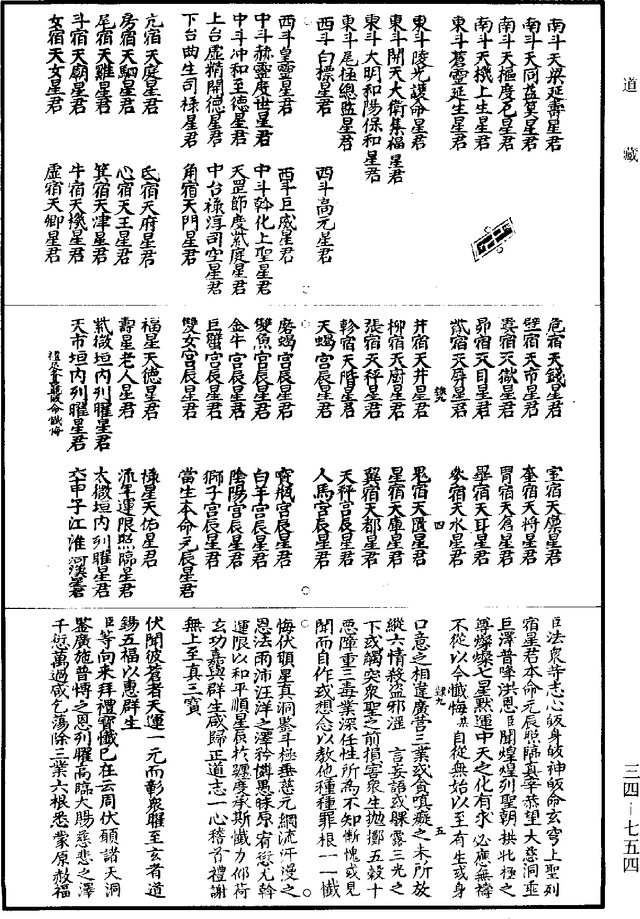 道藏
南斗天梁延壽星君
南斗天同益筭星君
南斗天樞度厄星君
南斗天機上生星君
東斗蒼靈延生星君
東斗陵光護命星君
東斗開天大衛集福星君
東斗大明和陽保和星君
東斗尾極總監星君
西斗白標星君 西斗高元星君
西斗皇靈星君 西斗巨威星君
中斗赫靈度世星君 中斗幹化上聖星君
中斗冲和至德星君 天罡節度紫庭星君
上台虛精開德星君 中台祿淳司空星君
下台曲生司祿星君 角宿天門星君
亢宿天庭星君 氐宿天府星君
房宿天駟星君 心宿天王星君
尾宿天雞星君 箕宿天津星君
斗宿天廟星君 牛宿天機星君
女宿天女星君 虛宿天卿星君
危宿天錢星君 室宿天廩星君
壁宿天市星君 奎宿天將星君
婁宿天獄星君 胃宿天倉星君
昴宿天目星君 畢宿天耳星君
觜宿天屏星君 參宿天水星君
四
井宿天井星君 鬼宿天匱星君
柳宿天廚星君 星宿天庫星君
張宿天秤星君 翼宿天都星君
軫宿天階星君 天秤宮辰星君
天蝎宮辰星君 人馬宮辰星君
磨蝎宮辰星君 寶瓶宮辰星君
雙魚宮辰星君 白羊宮辰星君
金牛宮辰星君 陰陽宮辰星君
巨蟹宮辰星君 獅子宮辰星君
雙女宮辰星君 當生本命元辰星君
福星天德星君 祿星天佑星君
壽星老人星君 流年運限照臨星君
紫微垣內列曜星君 太微垣內列曜星君
天市垣內列曜星君 六甲子江淮河漢星君
臣法衆等志心皈身皈神皈命玄穹上聖列
宿星君本命元辰照臨真宰恭望大慈洞垂
巨澤普降洪恩臣聞煌煌列聖朝拱北極之
尊燦燦七星默運中天之化有求必應無禱
不從以今懺悔某自從無始以至有生或身
五
口意之相違廣營三業或貪嗔癡之未所放
縱六情殺盜邪淫言妄語或躶露三光之
下或觸突衆聖之前損害衆生拋擲五穀十
惡障重三毒業深任性所為不知慚愧或見
聞而自作或想念以教他種種罪根一一懺
悔伏願星真洞鑒斗極垂慈元網流汗漫之
恩法雨沛汪洋之澤矜憐愚昧原宥愆尤幹
運限以和平順星辰於躔度承斯懺力仰荷
玄功嘉與群生咸歸正道志一心稽首禮謝
無上至真三寶
伏聞彼蒼者天運一元而彰衆曜至玄者道
錫五福以惠群生
臣等向來拜禮寶懺已在云周伏願諸天洞
鑒廣施普博之恩列曜高臨大賜慈悲之澤
千愆萬過咸乞蕩除三業六根悉蒙原赦福
三四—七五四